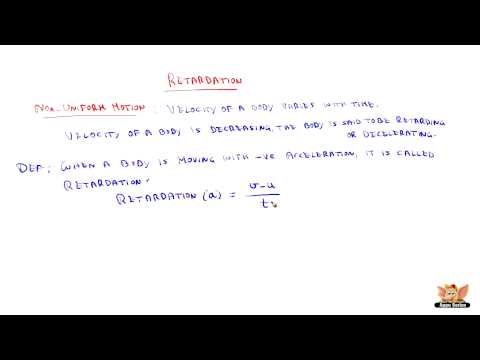 RETARDATION
NON-UNIFORM MOTION : VELOCITY OF A BODY VARIES WITH TIME.
VELOCITY OF A BODY IS DECREASING, THE BODY IS SAID TO BE RETARDING
OR DECELERATING.
DEF: WHEN A BODY IS MOVING WITH -VE ACCELERATION, IT IS CALLED
RETARDATION.
RETARDATION (a) = v-u / t
Appu Series